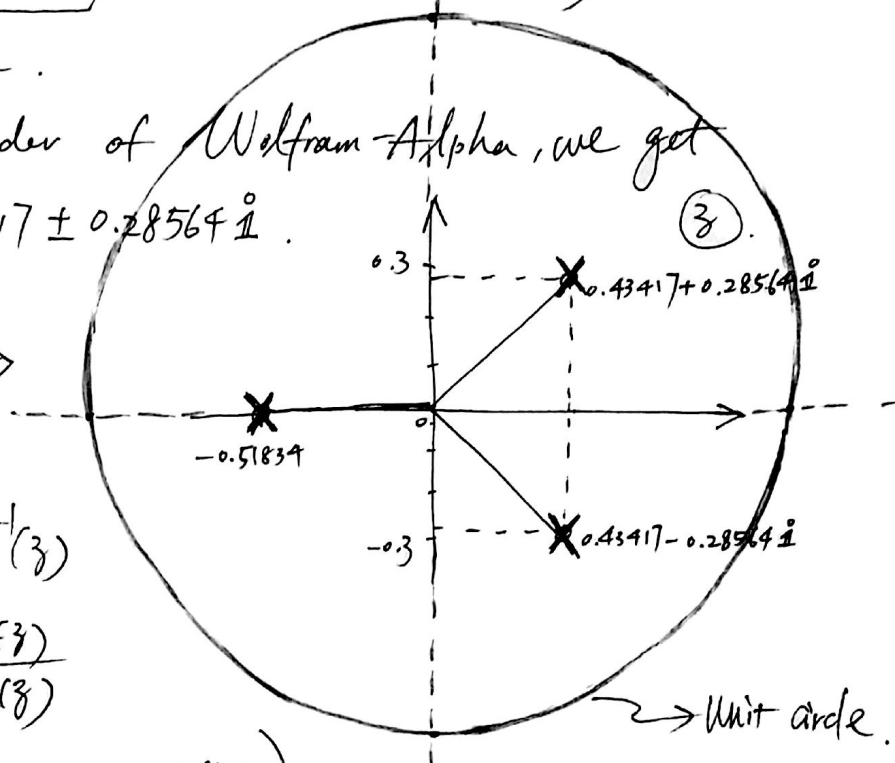 of Wolfram-Alpha, we get
17 ± 0.28564 i.
z.
0.3
0.43417+0.28564 i
0
-0.51834
-0.3
0.43417-0.28564 i
(z)
(z)
(z)
Unit circle.